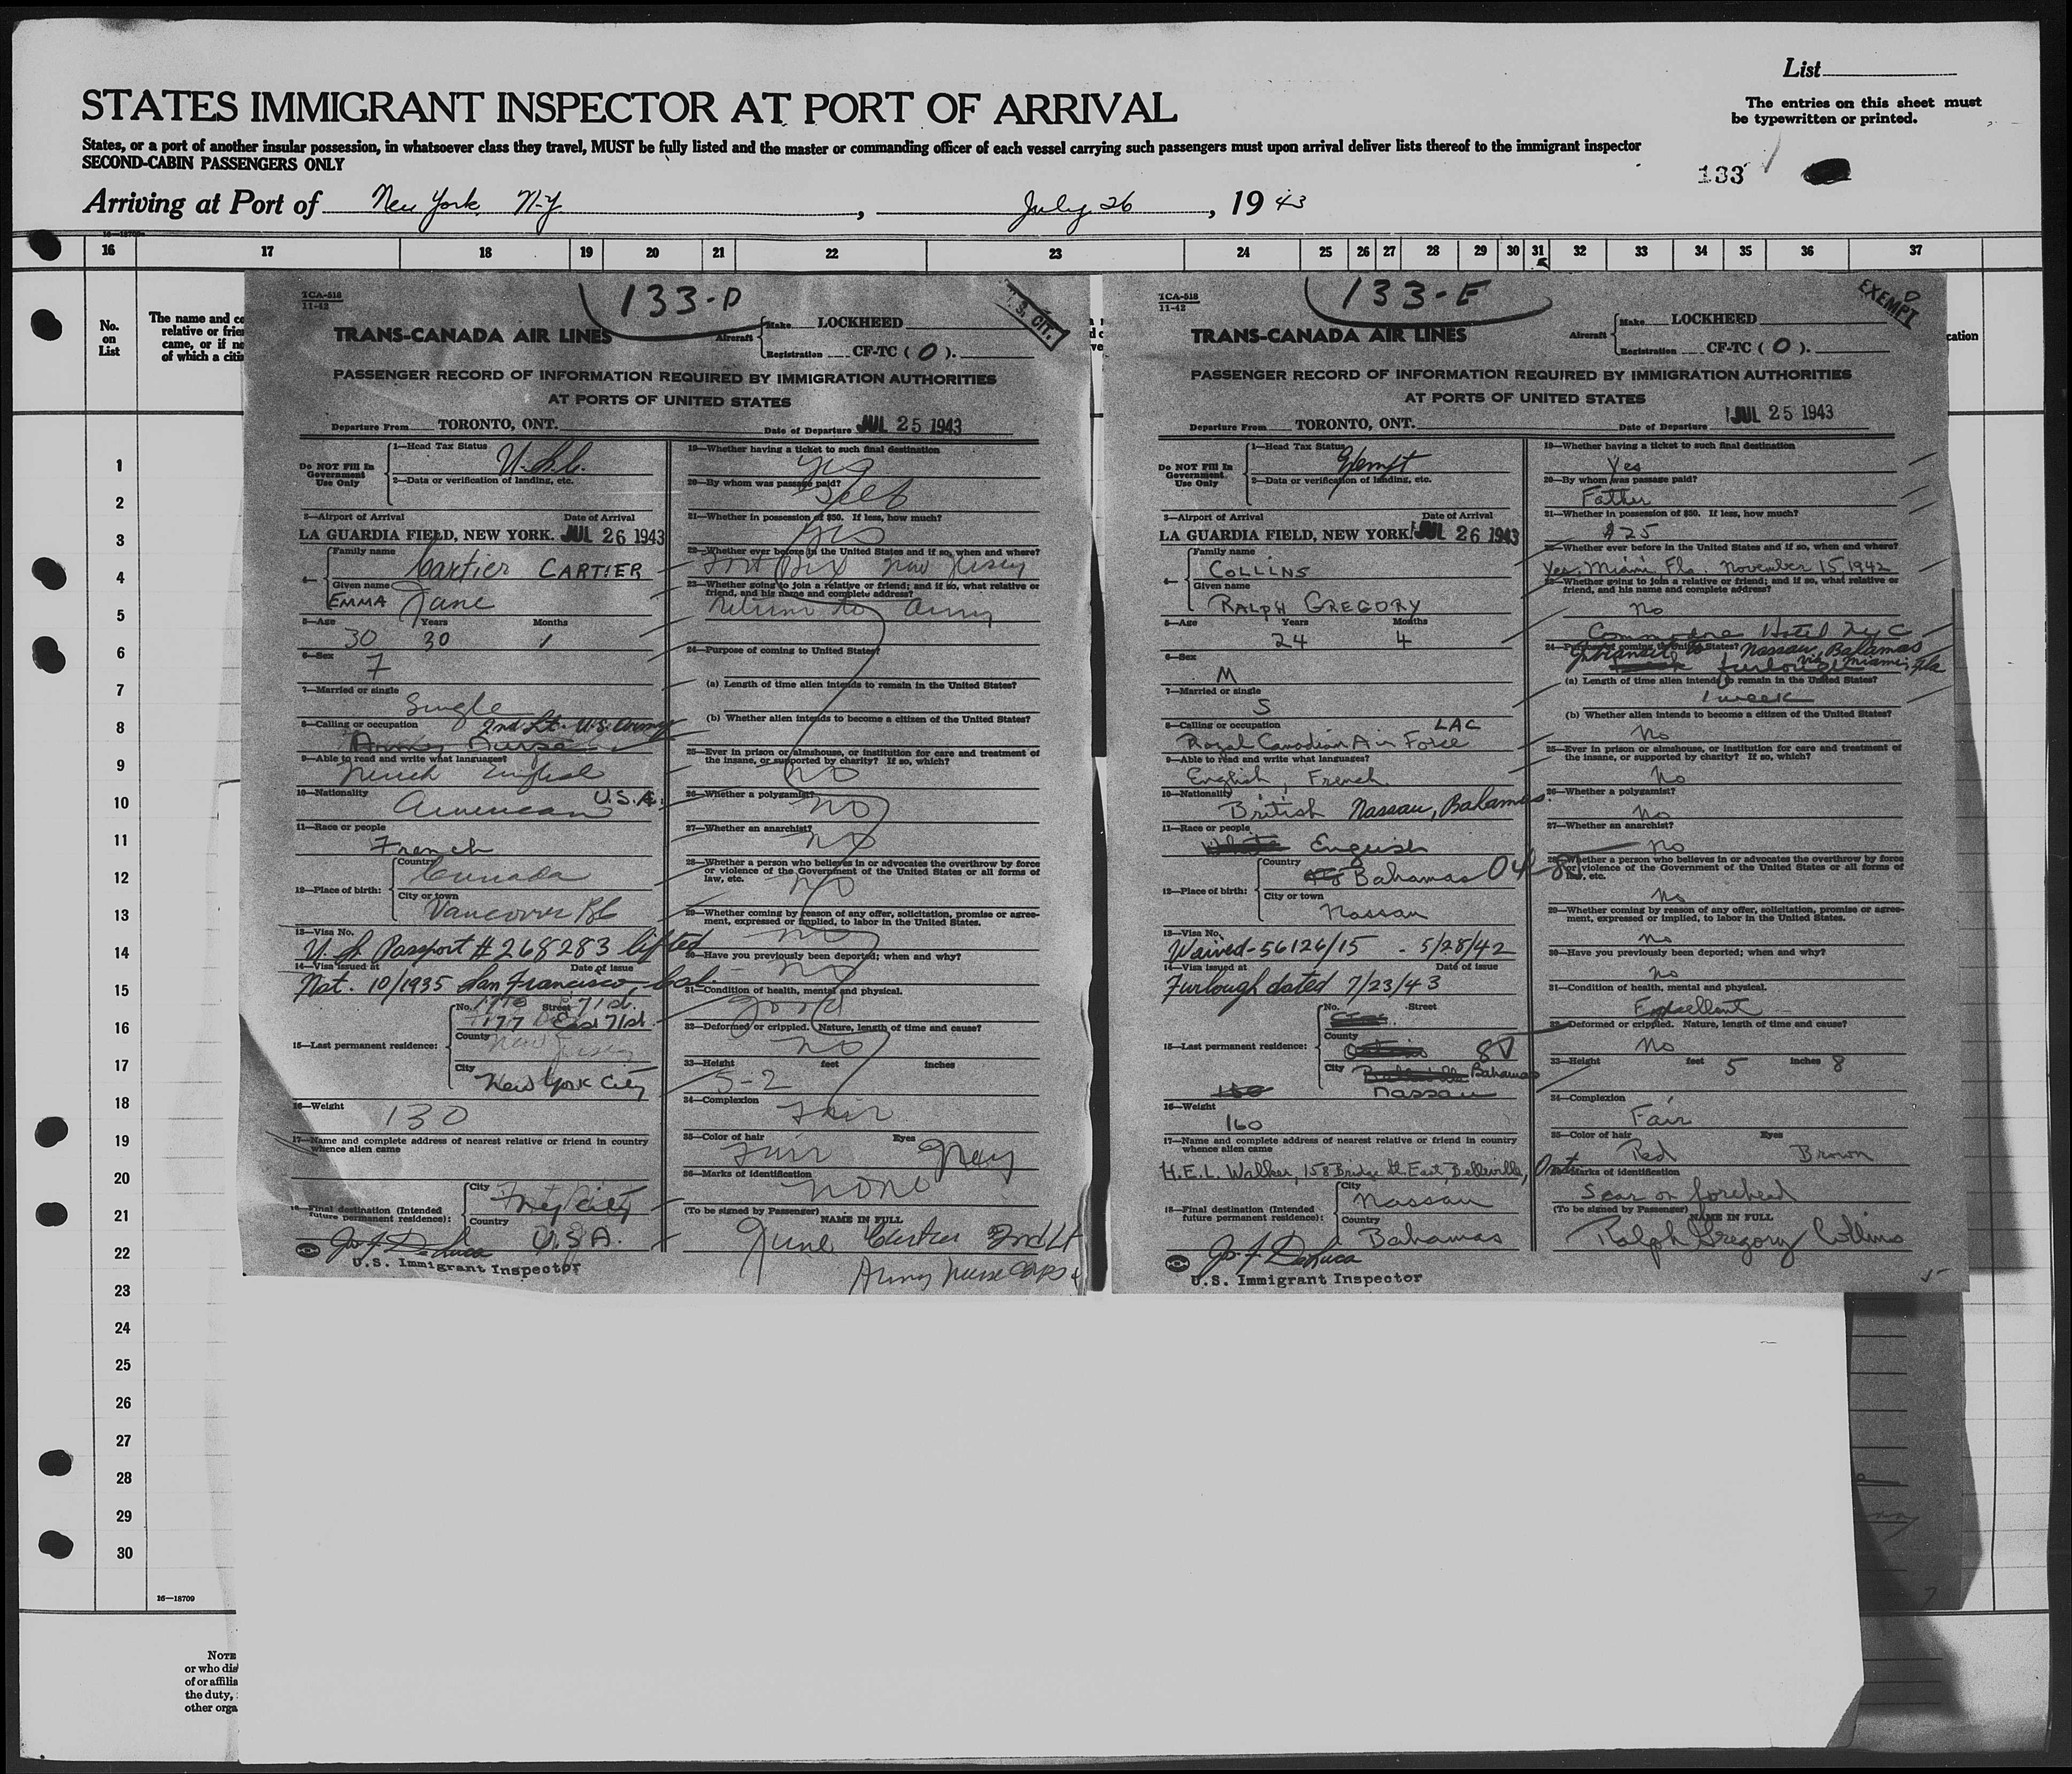 List
STATES IMMIGRANT INSPECTOR AT PORT OF ARRIVAL
The entries on this sheet must
be typewritten or printed.
States, or a port of another insular possession, in whatsoever class they travel, MUST be fully listed and the master or commanding officer of each vessel carrying such passengers must upon arrival deliver lists thereof to the immigrant inspector
SECOND-CABIN PASSENGERS ONLY
133
Arriving at Port of New York, N.Y. , July 26 , 1943
16 17 18 19 20 21 22 23 24 25 26 27 28 29 30 31 32 33 34 35 36 37
No.
on
List
The name and co
relative or frie
came, or if no
of which a citi
cation
1
2
3
4
5
6
7
8
9
10
11
12
13
14
15
16
17
18
19
20
21
22
23
24
25
26
27
28
29
30
16—18709
NOTE
or who dis
of or affilia
the duty,
other orga
TCA-518
11-42
133-D
U.S. CIT.
TRANS-CANADA AIR LINES
Aircraft Make LOCKHEED
Registration CF-TC ( O ).
PASSENGER RECORD OF INFORMATION REQUIRED BY IMMIGRATION AUTHORITIES
AT PORTS OF UNITED STATES
Departure From TORONTO, ONT. Date of Departure JUL 25 1943
Do NOT Fill In
Government
Use Only
1—Head Tax Status U.S.C.
2—Data or verification of landing, etc.
3—Airport of Arrival Date of Arrival
LA GUARDIA FIELD, NEW YORK. JUL 26 1943
4— Family name Cartier CARTIER
Given name EMMA Jane
5—Age Years Months
30 30 1
6—Sex
F
7—Married or single
Single
8—Calling or occupation 2nd Lt. U.S. Army
Army Nurse
9—Able to read and write what languages?
French English
10—Nationality U.S.A.
American
11—Race or people
French
12—Place of birth: Country
Canada
City or town
Vancouver BC
13—Visa No.
U.S. Passport # 268283 lifted
14—Visa issued at Date of issue
Nat. 10/1935 San Francisco, Cal.
15—Last permanent residence: No. Street
177 East 71st.
County
New Jersey
City
New York City
16—Weight 130
17—Name and complete address of nearest relative or friend in country
whence alien came
18—Final destination (Intended
future permanent residence):
City
Country U.S.A.
Jos. F. DeLuca
U.S. Immigrant Inspector
19—Whether having a ticket to such final destination
yes
20—By whom was passage paid?
Self
21—Whether in possession of $50. If less, how much?
yes
22—Whether ever before in the United States and if so, when and where?
Fort Dix New Jersey
23—Whether going to join a relative or friend; and if so, what relative or
friend, and his name and complete address?
Return to Army
24—Purpose of coming to United States?
(a) Length of time alien intends to remain in the United States?
(b) Whether alien intends to become a citizen of the United States?
25—Ever in prison or almshouse, or institution for care and treatment of
the insane, or supported by charity? If so, which?
no
26—Whether a polygamist?
no
27—Whether an anarchist?
no
28—Whether a person who believes in or advocates the overthrow by force
or violence of the Government of the United States or all forms of
law, etc.
no
29—Whether coming by reason of any offer, solicitation, promise or agree-
ment, expressed or implied, to labor in the United States.
no
30—Have you previously been deported; when and why?
no
31—Condition of health, mental and physical.
good
32—Deformed or crippled. Nature, length of time and cause?
no
33—Height feet inches
5-2
34—Complexion
Fair
35—Color of hair Eyes
Fair Gray
36—Marks of identification
none
(To be signed by Passenger) NAME IN FULL
Jane Cartier 2nd Lt
Army Nurse Corps
TCA-518
11-42
133-E
EXEMPT
TRANS-CANADA AIR LINES
Aircraft Make LOCKHEED
Registration CF-TC ( O ).
PASSENGER RECORD OF INFORMATION REQUIRED BY IMMIGRATION AUTHORITIES
AT PORTS OF UNITED STATES
Departure From TORONTO, ONT. Date of Departure JUL 25 1943
Do NOT Fill In
Government
Use Only
1—Head Tax Status Exempt
2—Data or verification of landing, etc.
3—Airport of Arrival Date of Arrival
LA GUARDIA FIELD, NEW YORK. JUL 26 1943
4— Family name
COLLINS
Given name
RALPH GREGORY
5—Age Years Months
24 4
6—Sex
M
7—Married or single
S
8—Calling or occupation LAC
Royal Canadian Air Force
9—Able to read and write what languages?
English, French
10—Nationality
British Nassau, Bahamas.
11—Race or people
White English
12—Place of birth: Country
Bahamas
City or town
Nassau
13—Visa No.
Waived-56126/15 - 5/28/42
14—Visa issued at Date of issue
Furlough dated 7/23/43
15—Last permanent residence: No. Street
County
Ontario
City Belleville Bahamas
Nassau
160
16—Weight
160
17—Name and complete address of nearest relative or friend in country
whence alien came
H.E.L. Walker, 158 Bridge St. East, Belleville, Ont
18—Final destination (Intended
future permanent residence):
City
Nassau
Country
Bahamas
Jos. F. DeLuca
U.S. Immigrant Inspector
19—Whether having a ticket to such final destination
Yes
20—By whom was passage paid?
Father
21—Whether in possession of $50. If less, how much?
$25
22—Whether ever before in the United States and if so, when and where?
Yes, Miami, Fla. November 15, 1942
23—Whether going to join a relative or friend; and if so, what relative or
friend, and his name and complete address?
No
Commodore Hotel N.Y.C
24—Purpose of coming to United States?
In transit to Nassau, Bahamas
furlough via Miami, Fla
(a) Length of time alien intends to remain in the United States?
1 week
(b) Whether alien intends to become a citizen of the United States?
No
25—Ever in prison or almshouse, or institution for care and treatment of
the insane, or supported by charity? If so, which?
No
26—Whether a polygamist?
No
27—Whether an anarchist?
No
28—Whether a person who believes in or advocates the overthrow by force
or violence of the Government of the United States or all forms of
law, etc.
No
29—Whether coming by reason of any offer, solicitation, promise or agree-
ment, expressed or implied, to labor in the United States.
No
30—Have you previously been deported; when and why?
No
31—Condition of health, mental and physical.
Excellent
32—Deformed or crippled. Nature, length of time and cause?
No
33—Height feet 5 inches 8
34—Complexion
Fair
35—Color of hair Eyes
Red Brown
36—Marks of identification
Scar on forehead
(To be signed by Passenger) NAME IN FULL
Ralph Gregory Collins